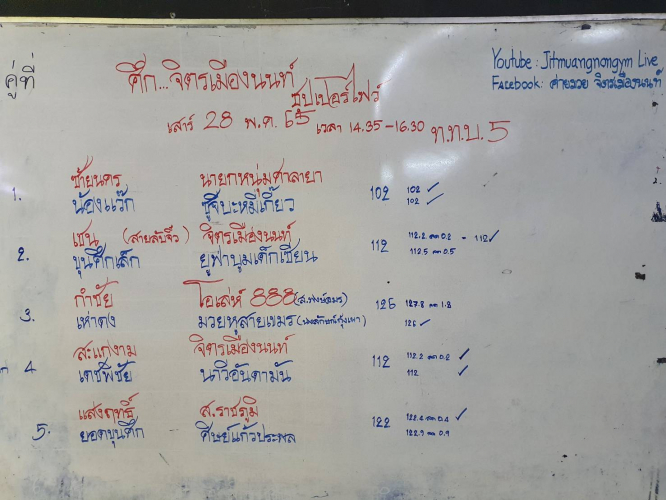 คู่ที่
ศึก...จิตรเมืองนนท์
ซุปเปอร์ไฟว์
เสาร์ 28 พ.ค. 65 เวลา 14.35-16.30 ท.ท.บ. 5
Youtube : Jitmuangnongym Live
Facebook : ค่ายมวย จิตรเมืองนนท์
1. ชัยนคร นายกหนุ่มศาลายา
น้องแว๊ก ซูจีบะหมี่เกี๊ยว 102 102 ✓
102 ✓
2. เชน (สายลับจิ๋ว) จิตรเมืองนนท์ 112 112.2 ลด 0.2 - 112 ✓
ขุนศึกเล็ก ยูฟ่าบูมเด็กเซียน 112.5 ลด 0.5
3. กำชัย โอเล่ห์ 888 126 127.8 ลด 1.8
เห่าดง มวยหูสายเขมร 126 ✓
4 สะแกงาม จิตรเมืองนนท์ 112 112.2 ลด 0.2 ✓
เดชพิชัย นาวีอันดามัน 112 ✓
5. แสงฤทธิ์ ส.ราชภูมิ 122 122.4 ลด 0.4 ✓
ยอดขุนศึก ศิษย์แก้วประพล 122.9 ลด 0.9